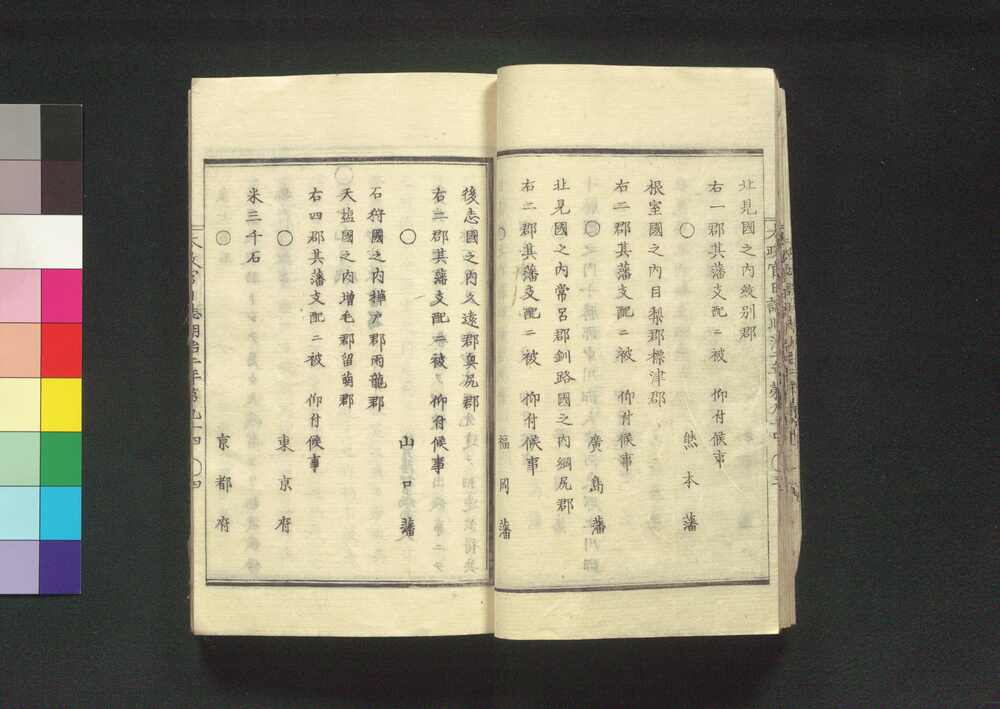 北見國之內紋別郡
右一郡其藩支配ニ被 仰付候事
○ 熊本藩
根室國之內目梨郡標津郡
右二郡其藩支配ニ被 仰付候事
○ 廣島藩
北見國之內常呂郡釧路國之內網尻郡
右二郡其藩支配ニ被 仰付候事
○ 福岡藩
後志國之內久遠郡奥尻郡
右二郡其藩支配ニ被 仰付候事
○ 山口藩
石狩國之內樺戸郡雨龍郡
天塩國之內增毛郡留萌郡
右四郡其藩支配ニ被 仰付候事
○ 東京府
米三千石
○ 京都府
太政官日誌明治二年第九十四 ○四